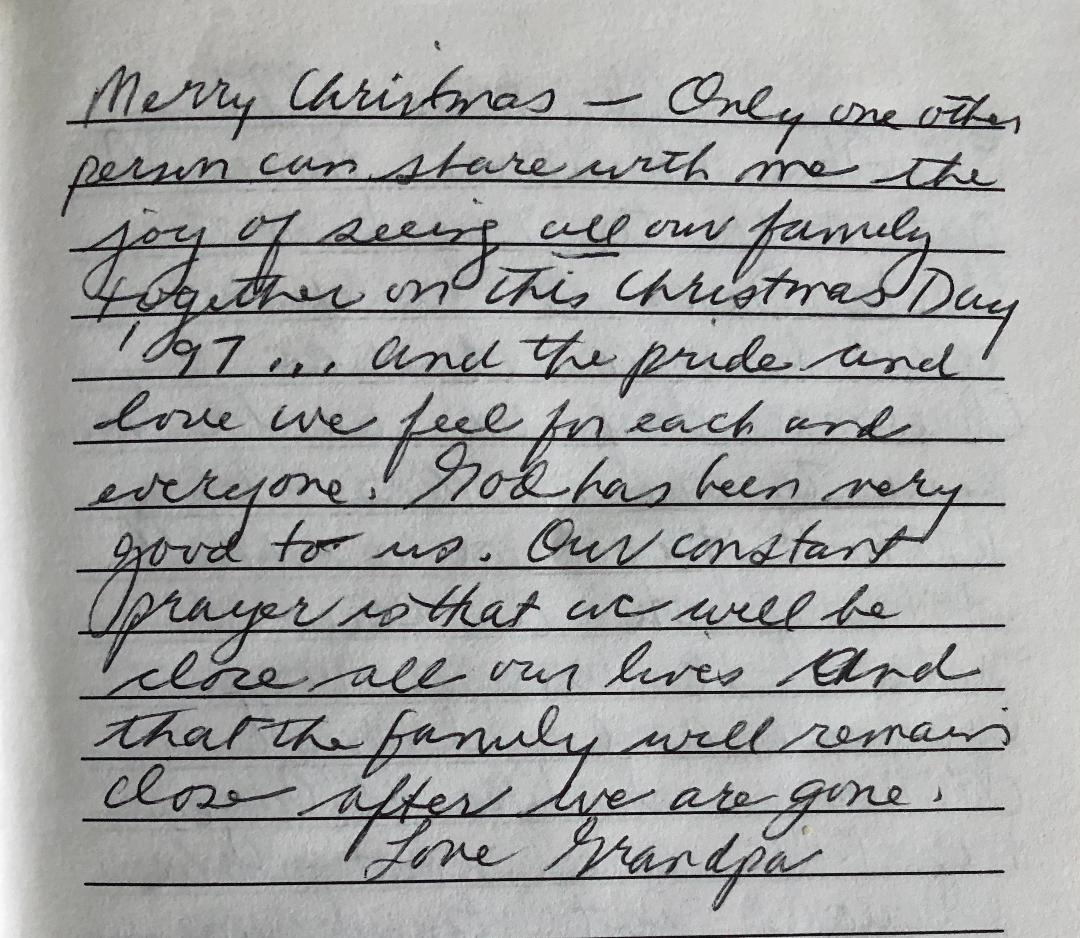 Merry Christmas — Only one other
person can share with me the
joy of seeing all our family
together on this Christmas Day
'97... and the pride and
love we feel for each and
everyone. God has been very
good to us. Our constant
prayer is that we will be
close all our lives and
that the family will remain
close after we are gone.
Love Grandpa